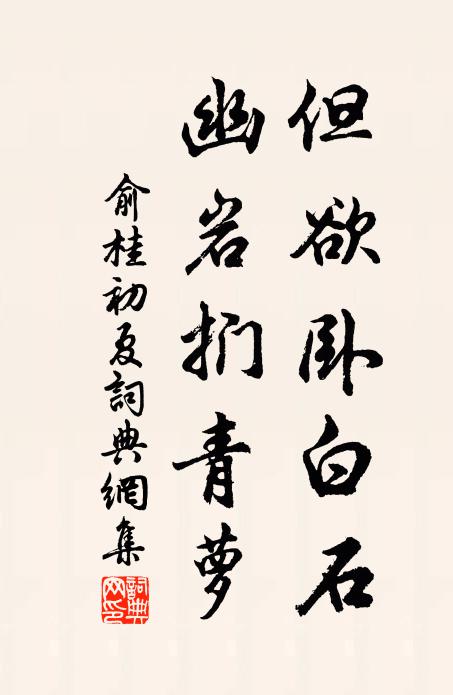 但欲卧白石
幽岩扪青萝
俞桂初夏詞典網集
詞典
网印